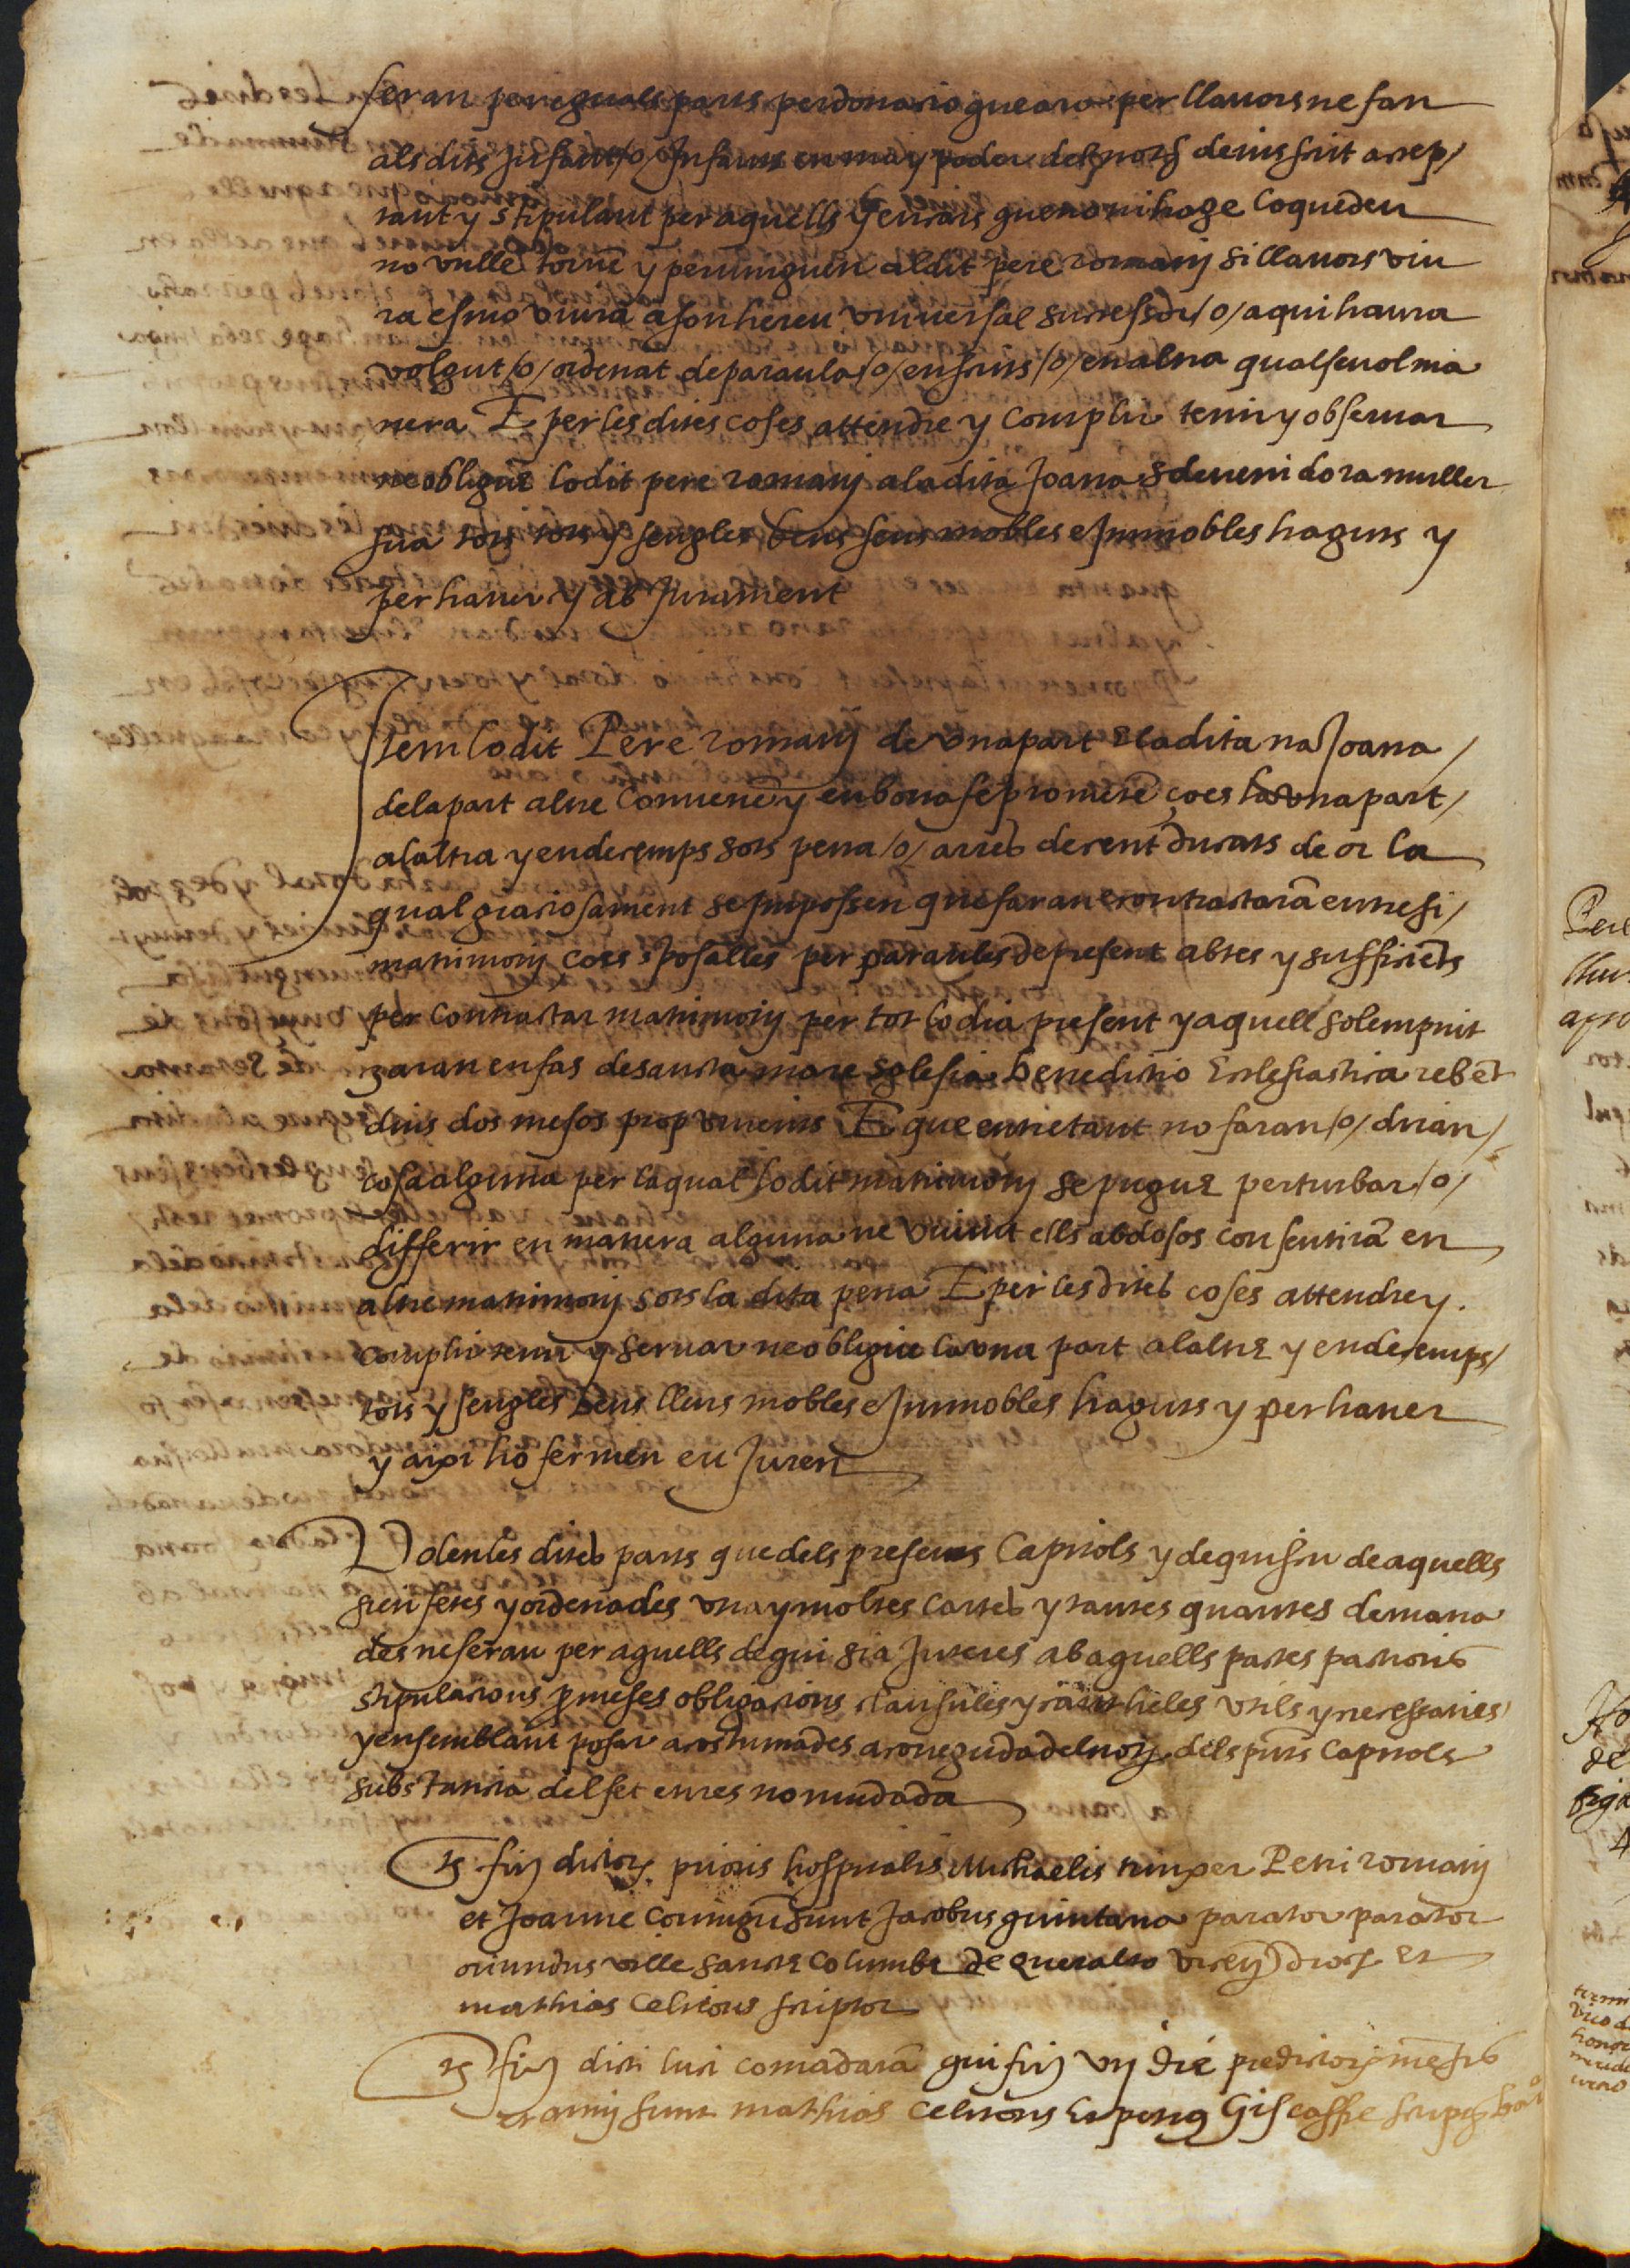 seran per eguals parts per donatio que ara per llauors ne fan
als dits Infant /o/ Infants en ma y poder del not(ari) deius scrit accep/
tant y stipulant per aquells y en cars que noni hage lo que deu
no vulle torne y peruinguen aldit pere romanij si llauors viu
ra e si no viura a son hereu vniuersal succesor /o/ aqui haura
volgut /o/ ordenat de paraula /o/ en scrits /o/ en altra qualseuol ma
nera E per les dites coses attendre y complir tenir y obseruar
ne obligue lodit pere romanij ala dita Joana sdeuenidora muller
sua tots tots y sengles bens seus mobles e Inmobles haguts y
per hauer y ab Jurament
Item lodit Pere romanij de vna part e la dita na Joana /
de la part altre Conuenē y en bona fe prometē ço es la vna part /
a la altra y endecemps sots pena /o/ arres de cent ducats de or la
qual graciosament se Imposen que faran e contractarā entre si /
matrimonj ço es sposalles per paraules de present abtes y sufficiēts
per contractar matrimonj per tot lo dia present y aquell solempnit
zaran en fas de sancta mare sglesia benedictio Eclesiastica rebēt
dins dos mesos prop vinents E que entretant no faran /o/ diran /
cosa alguna per la qual lo dit matrimonj se pugue perturbar /o/
differir en manera alguna ne viuint ells abdosos consentirā en
altre matrimonj sots la dita pena E per les dites coses attendre y
complir tenir y seruar ne obligue la vna part a la altre y endecemps /
tots y sengles bens llurs mobles e Inmobles haguts y per hauer
y axi ho fermen eu Juren
Volen les dites parts que dels presents Capitols y de quiscu de aquells
sien fetes y ordenades vna y moltes cartes y tantes quantes demana
des ne seran per aquells de qui sia Interes ab aquells pactes pactions
stipulacions pmeses obligacions clausules y cautheles vtils y necessaries
y en semblant posar acostumades a coneguda del not(ari) dels pnts Capitols
substancia del fet en res no mudada
Ts firi dictor prioris hospitalis Michaelis Petri romanij
et Joanne Coniugū sunt Jacobus quintana parator parator
oriundus ville sancte Columbe de Queralto et
mathias Celitons scriptor
Ts firi dicti luci comadarā qui firi vij die predictor mēsis
et annj sunt mathias Celitons et petrus Giscaffre scriptores bar